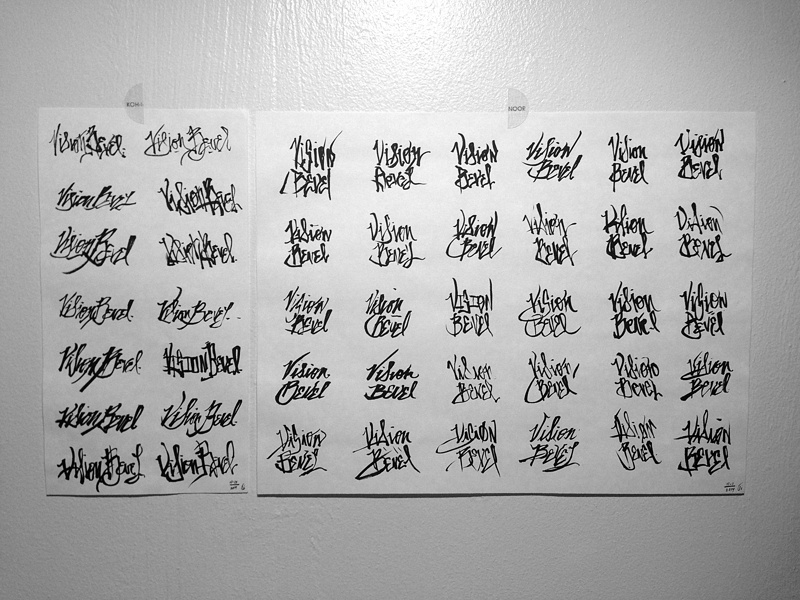 KOH-I
NOOR
Vision Bevel. Vision Bevel
Vision Bevel Vision Bevel
Vision Bevel Vision Bevel.
Vision Bevel. Vision Bevel...
Vision Bevel. Vision Bevel.
Vision Bevel Vision Bevel
Vision Bevel Vision Bevel.
Vision Vision Vision Vision Vision Vision
Bevel Bevel Bevel Bevel Bevel Bevel
Vision Vision Vision Vision Vision Vision
Bevel Bevel Bevel Bevel Bevel Bevel
Vision Vision Vision Vision Vision Vision
Bevel Bevel Bevel Bevel Bevel Bevel
Vision Vision Vision Vision Vision Vision
Bevel Bevel Bevel Bevel Bevel Bevel
Vision Vision Vision Vision Vision Vision
Bevel Bevel Bevel Bevel Bevel Bevel